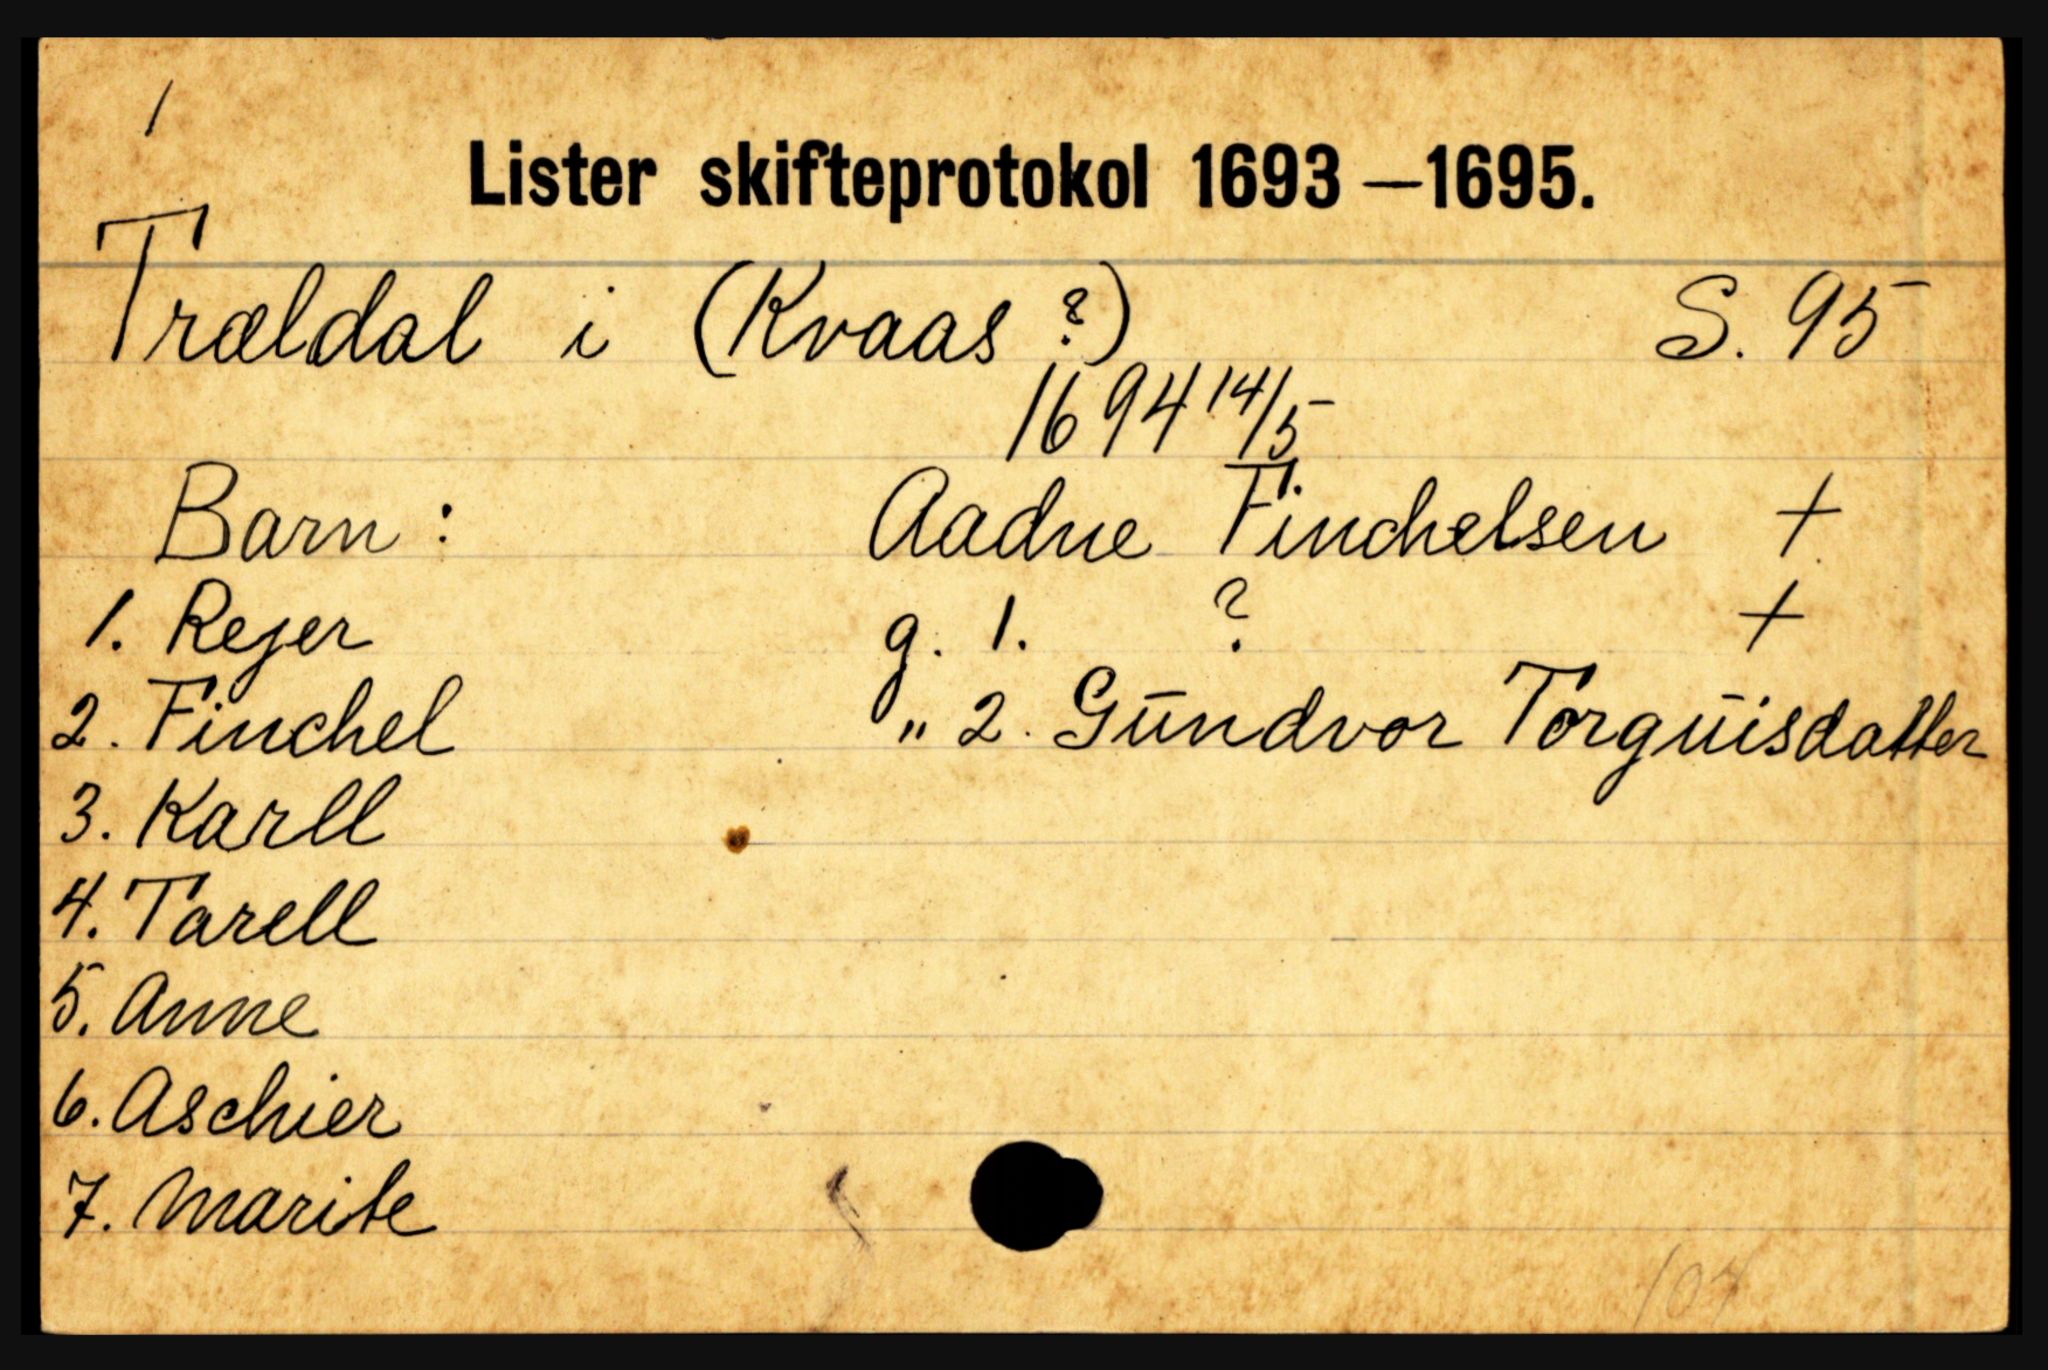 1
Lister skifteprotokol 1693—1695.
Træl­dal i (Kvaas ?) S. 95
1694 14/5
Barn: Aadne Finchelsen +
1. Rejer g. 1. ? +
2. Finchel " 2. Gūndvor Torgūisdatter
3. Karll
4. Tarell
5. Anne
6. Aschier
7. Marite
107